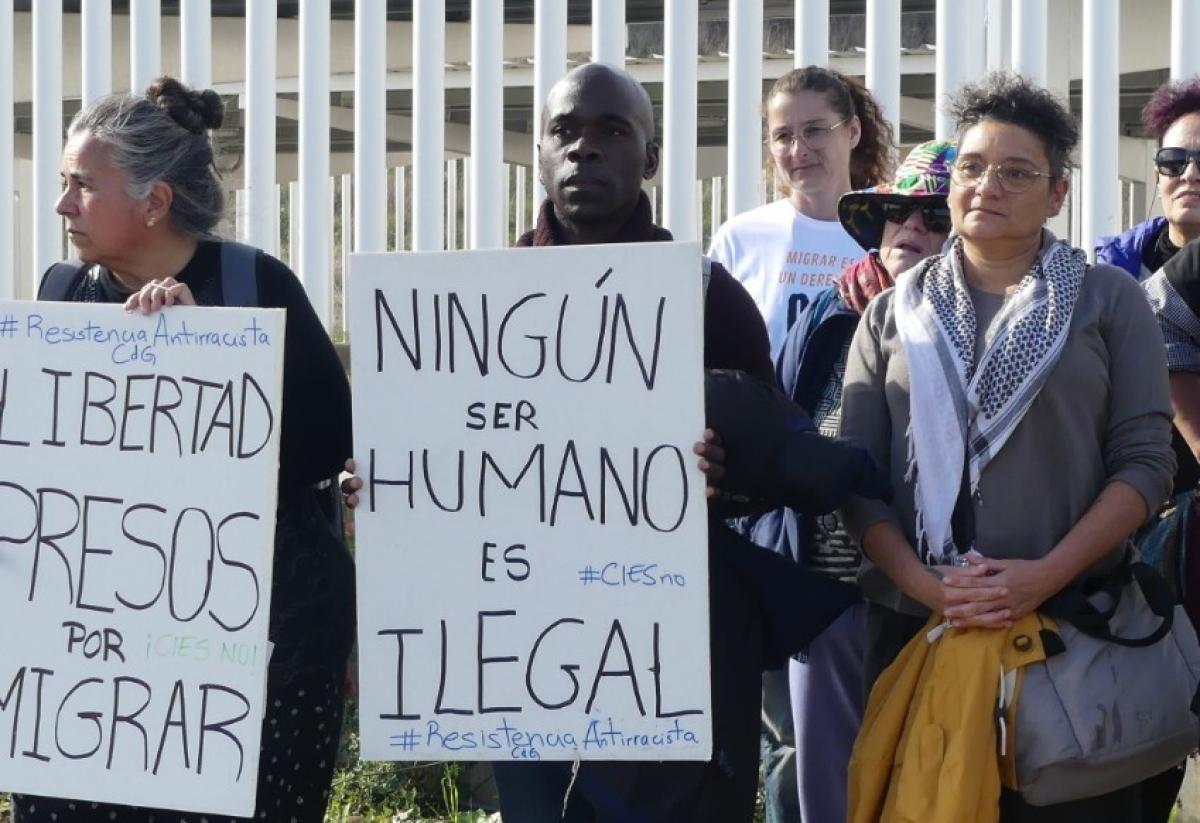 #ResistenciaAntirracista
CdG
LIBERTAD
PRESOS
POR ¡CIES NO!
MIGRAR
NINGÚN
SER
HUMANO
ES
#CIESno
ILEGAL
#ResistenciaAntirracista
CdG
MIGRAR ES
UN DERE